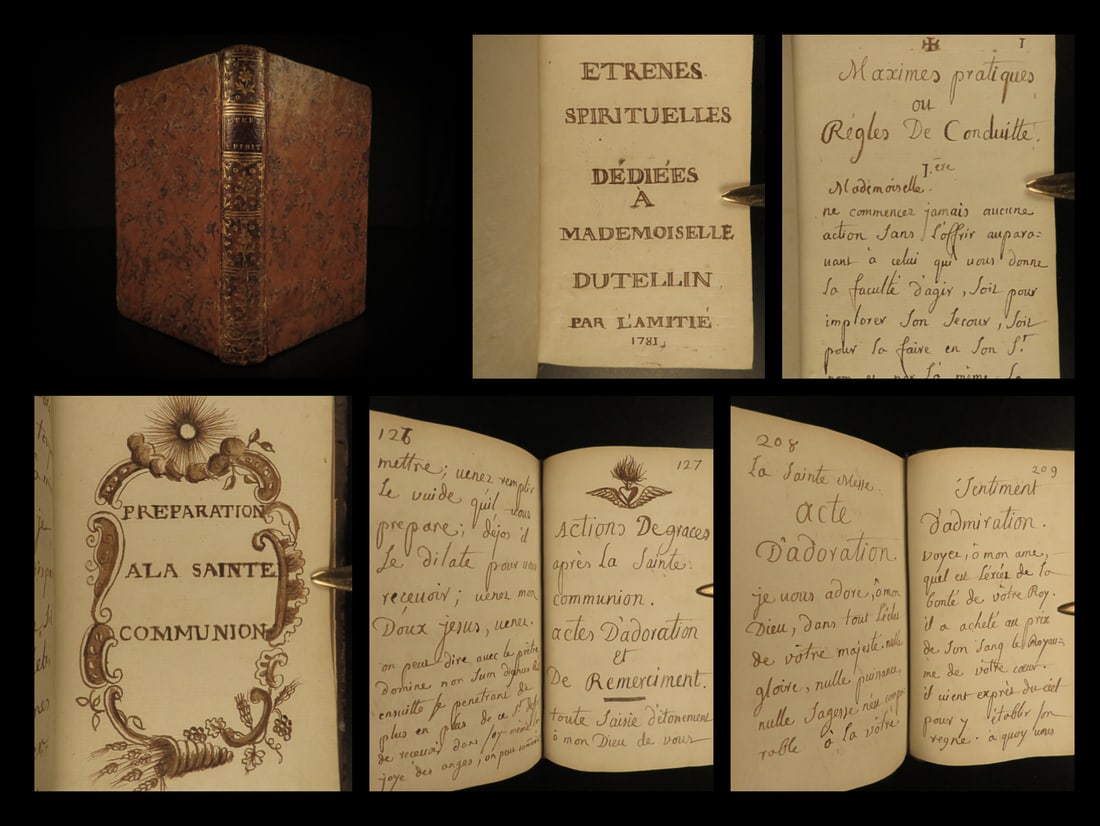 ETRE
SPIRIT
ETRENES
SPIRITUELLES
DÉDIÉES
À
MADEMOISELLE
DUTELLIN
PAR L'AMITIÉ
1781
1
Maximes pratiques
ou
Régles De Conduitte.
1.ere
Mademoiselle.
ne commencez jamais aucune
action sans l'offrir aupara=
uant à celui qui vous donne
la faculté d'agir, soit pour
implorer son secour, soit
pour la faire en son St.
nom et par là même la
PREPARATION
ALA SAINTE
COMMUNION
126
mettre; uenez remplir
Le vuide qu'il vous
prepare; déjas il
Le dilate pour vous
receuoir; uenez mon
Doux jesus, uenez.
on peut dire avec le prêtre
domine non sum dignus
ensuitte se penetrant de
plus en plus de ce St.
de receuoir dans
joye des anges, on peut
127
Actions De graces
après La Sainte
communion.
actes D'adoration
et
De Remerciment.
toute saisie d'étonement
ô mon Dieu de vous
208
La Sainte Messe.
acte
D'adoration.
je uous adore, ô mon
Dieu, dans tout L'éclat
de vôtre majesté. nulle
gloire, nulle puissance,
nulle sagesse n'est compa
rable à la vôtre
209
Sentiment
d'admiration.
voyez, ô mon ame,
quel est l'éxés de la
bonté de vôtre Roy.
il a acheté au prix
de son sang le Royau=
me de vôtre cœur.
il uient exprès du ciel
pour y établir son
regne. à quoy uous